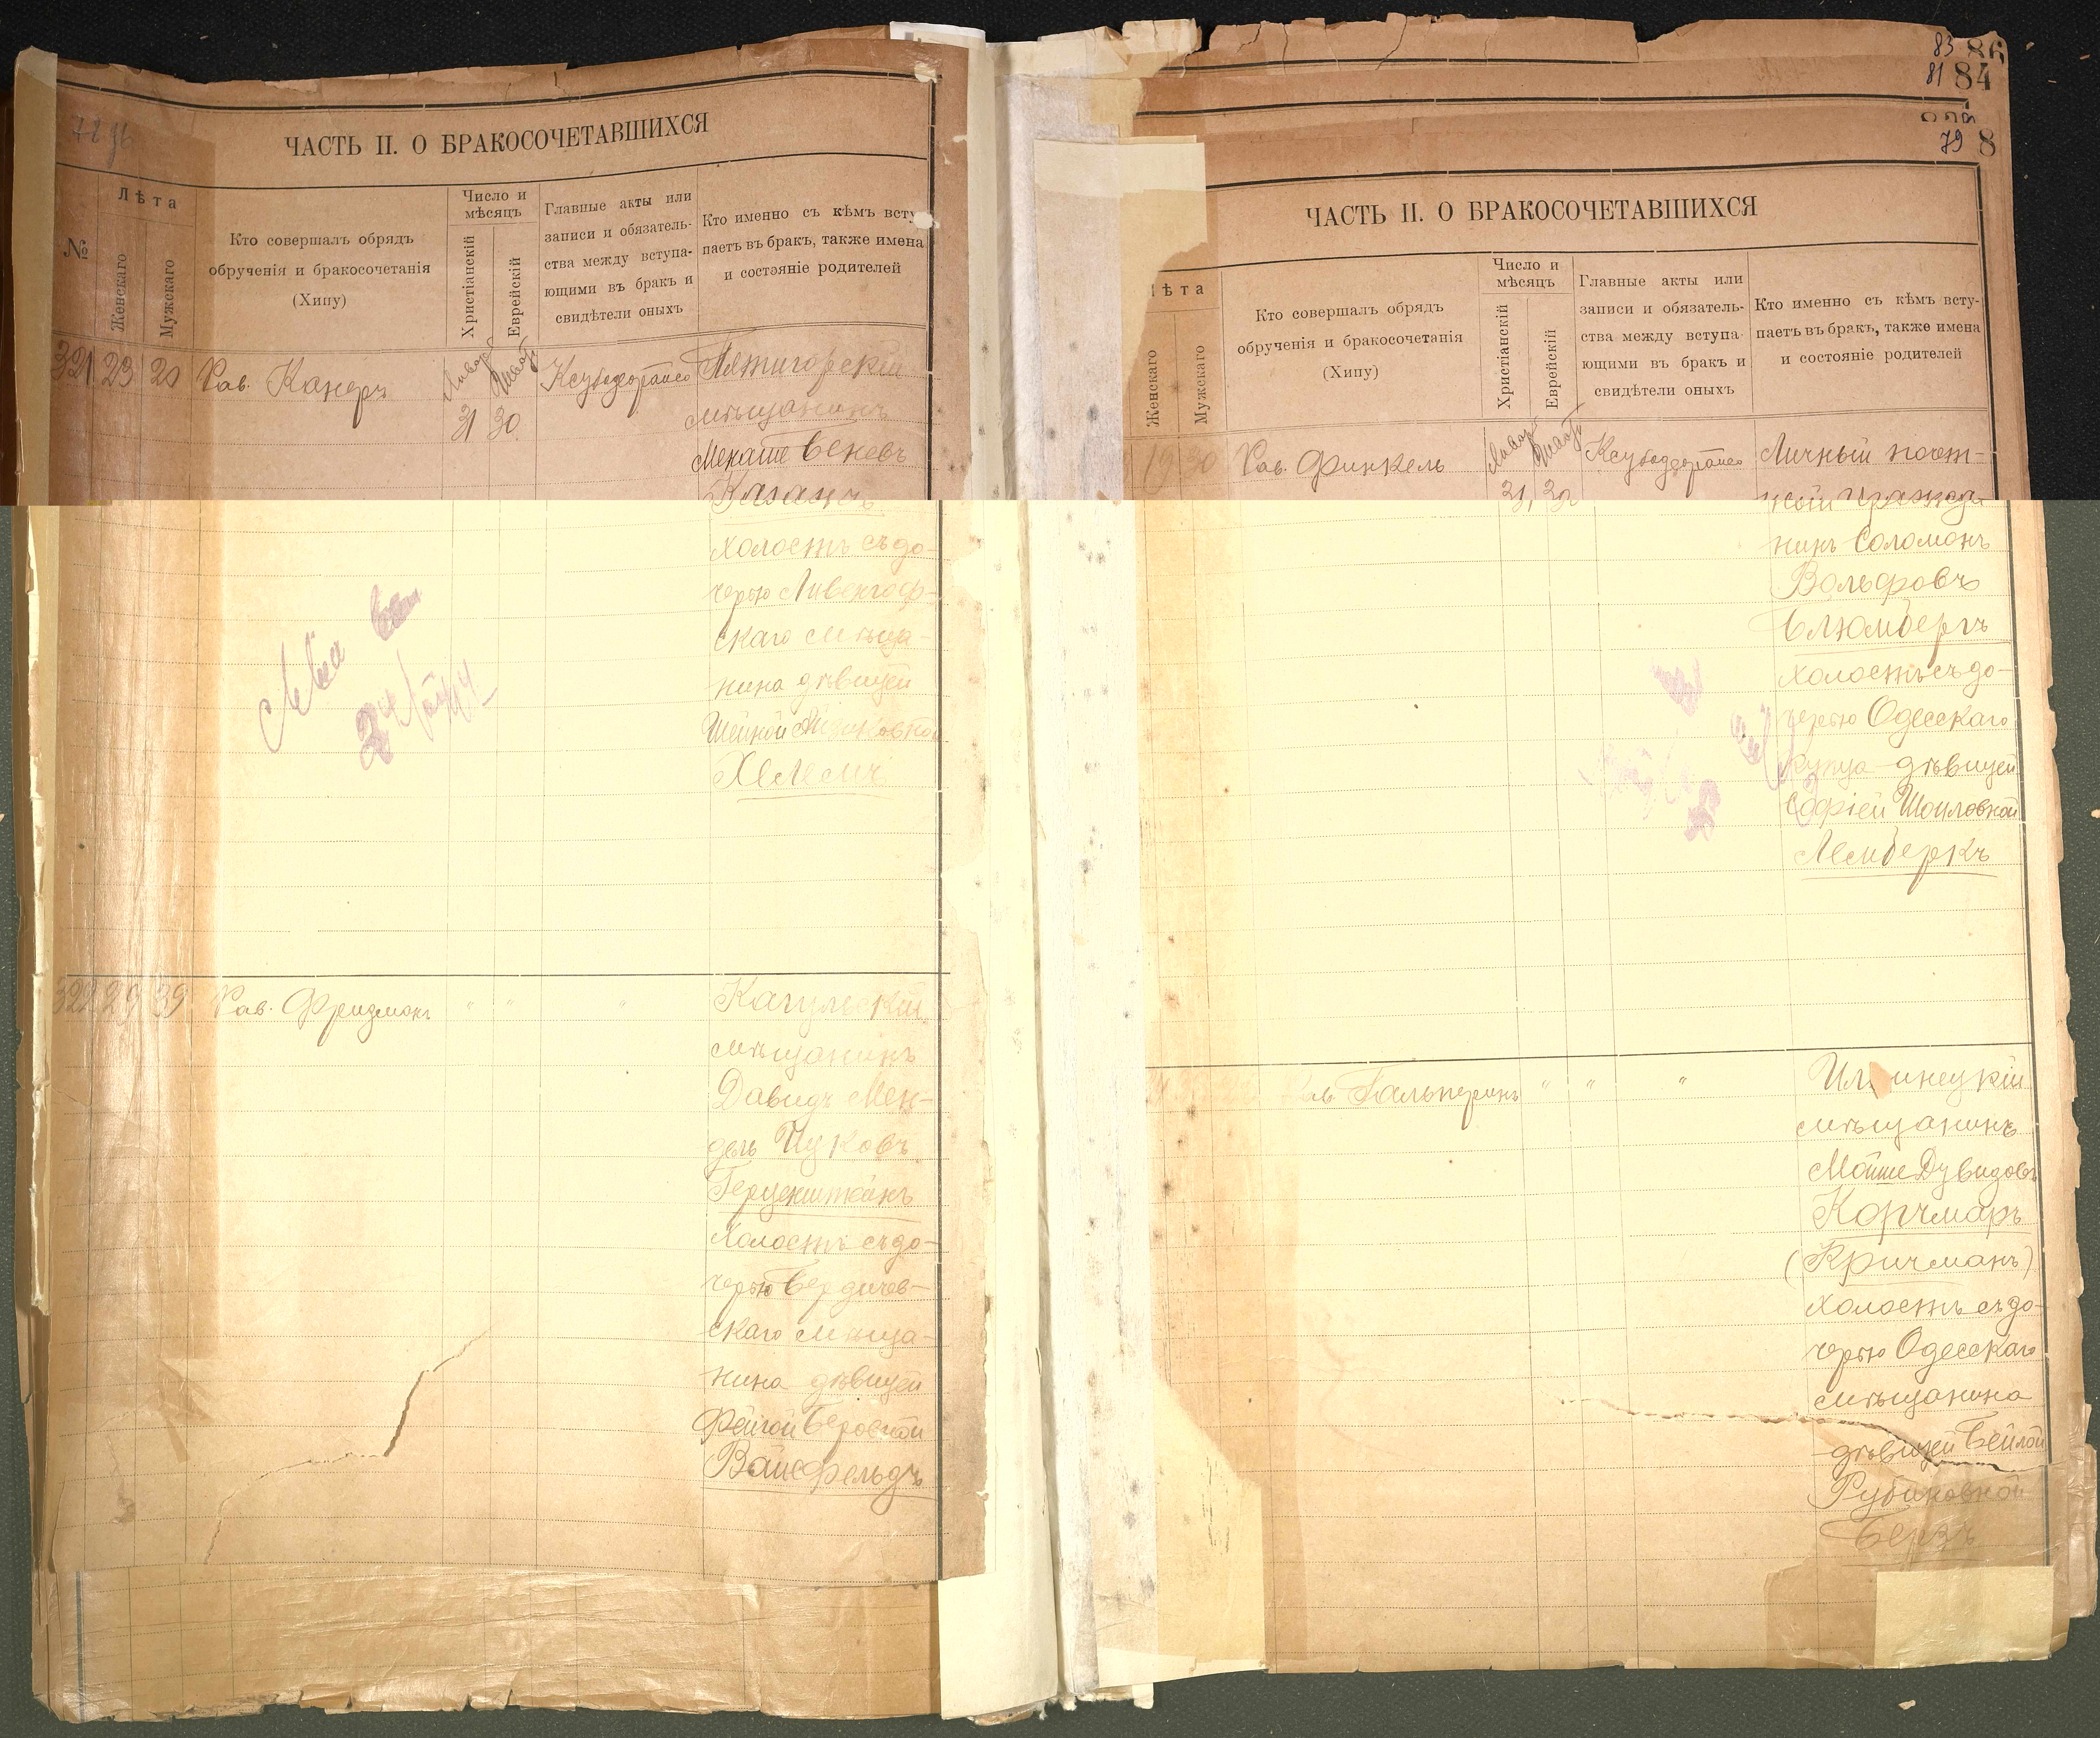 ЧАСТЬ II. О БРАКОСОЧЕТАВШИХСЯ
№
Лѣта
Женскаго
Мужскаго
Кто совершалъ обрядъ
обрученія и бракосочетанія
(Хипу)
Число и
мѣсяцъ
Христіанскій
Еврейскій
Главные акты или
записи и обязатель-
ства между вступа-
ющими въ бракъ и
свидѣтели оныхъ
Кто именно съ кѣмъ всту
паетъ въ бракъ, также имена
и состэніе родителей
321 23 20 Рав. Канеръ
31 30
Пятигорскій
мѣщанинъ
Казачъ
холостъ съ до-
черью Ливенгоф-
скаго мѣща-
нина дѣвицей
Шейной
Хелемъ
322 29 39 Рав. Фридманъ " " "
Кагульскій
мѣщанинъ
Давидъ Мен-
дель Ицковъ
Герценштейнъ
холостъ съ до-
черью Бердичев-
скаго мѣща-
нина дѣвицей
Фейгой Беровной
Вайсфельдъ
83 86
81 84
79 8
ЧАСТЬ II. О БРАКОСОЧЕТАВШИХСЯ
ѣта
Женскаго
Мужскаго
Кто совершалъ обрядъ
обрученія и бракосочетанія
(Хипу)
Число и
мѣсяцъ
Христіанскій
Еврейскій
Главные акты или
записи и обязатель-
ства между вступа-
ющими въ бракъ и
свидѣтели оныхъ
Кто именно съ кѣмъ всту-
паетъ въ бракъ, также имена
и состояніе родителей
19 30 Рав. Финкель
31 30
Личный почет-
ный гражда-
нинъ Соломонъ
Вольфовъ
Блюмбергъ
холостъ съ до-
черью Одесскаго
купца дѣвицей
Софіей Шоиловной
Лембергъ
Гальперинъ " " "
мѣщанинъ
Мойше Дувидовъ
Корчмаръ
(Кричманъ)
холостъ съ до-
черью Одесскаго
мѣщанина
дѣвицей Бейлой
Рубиновной
Берзъ